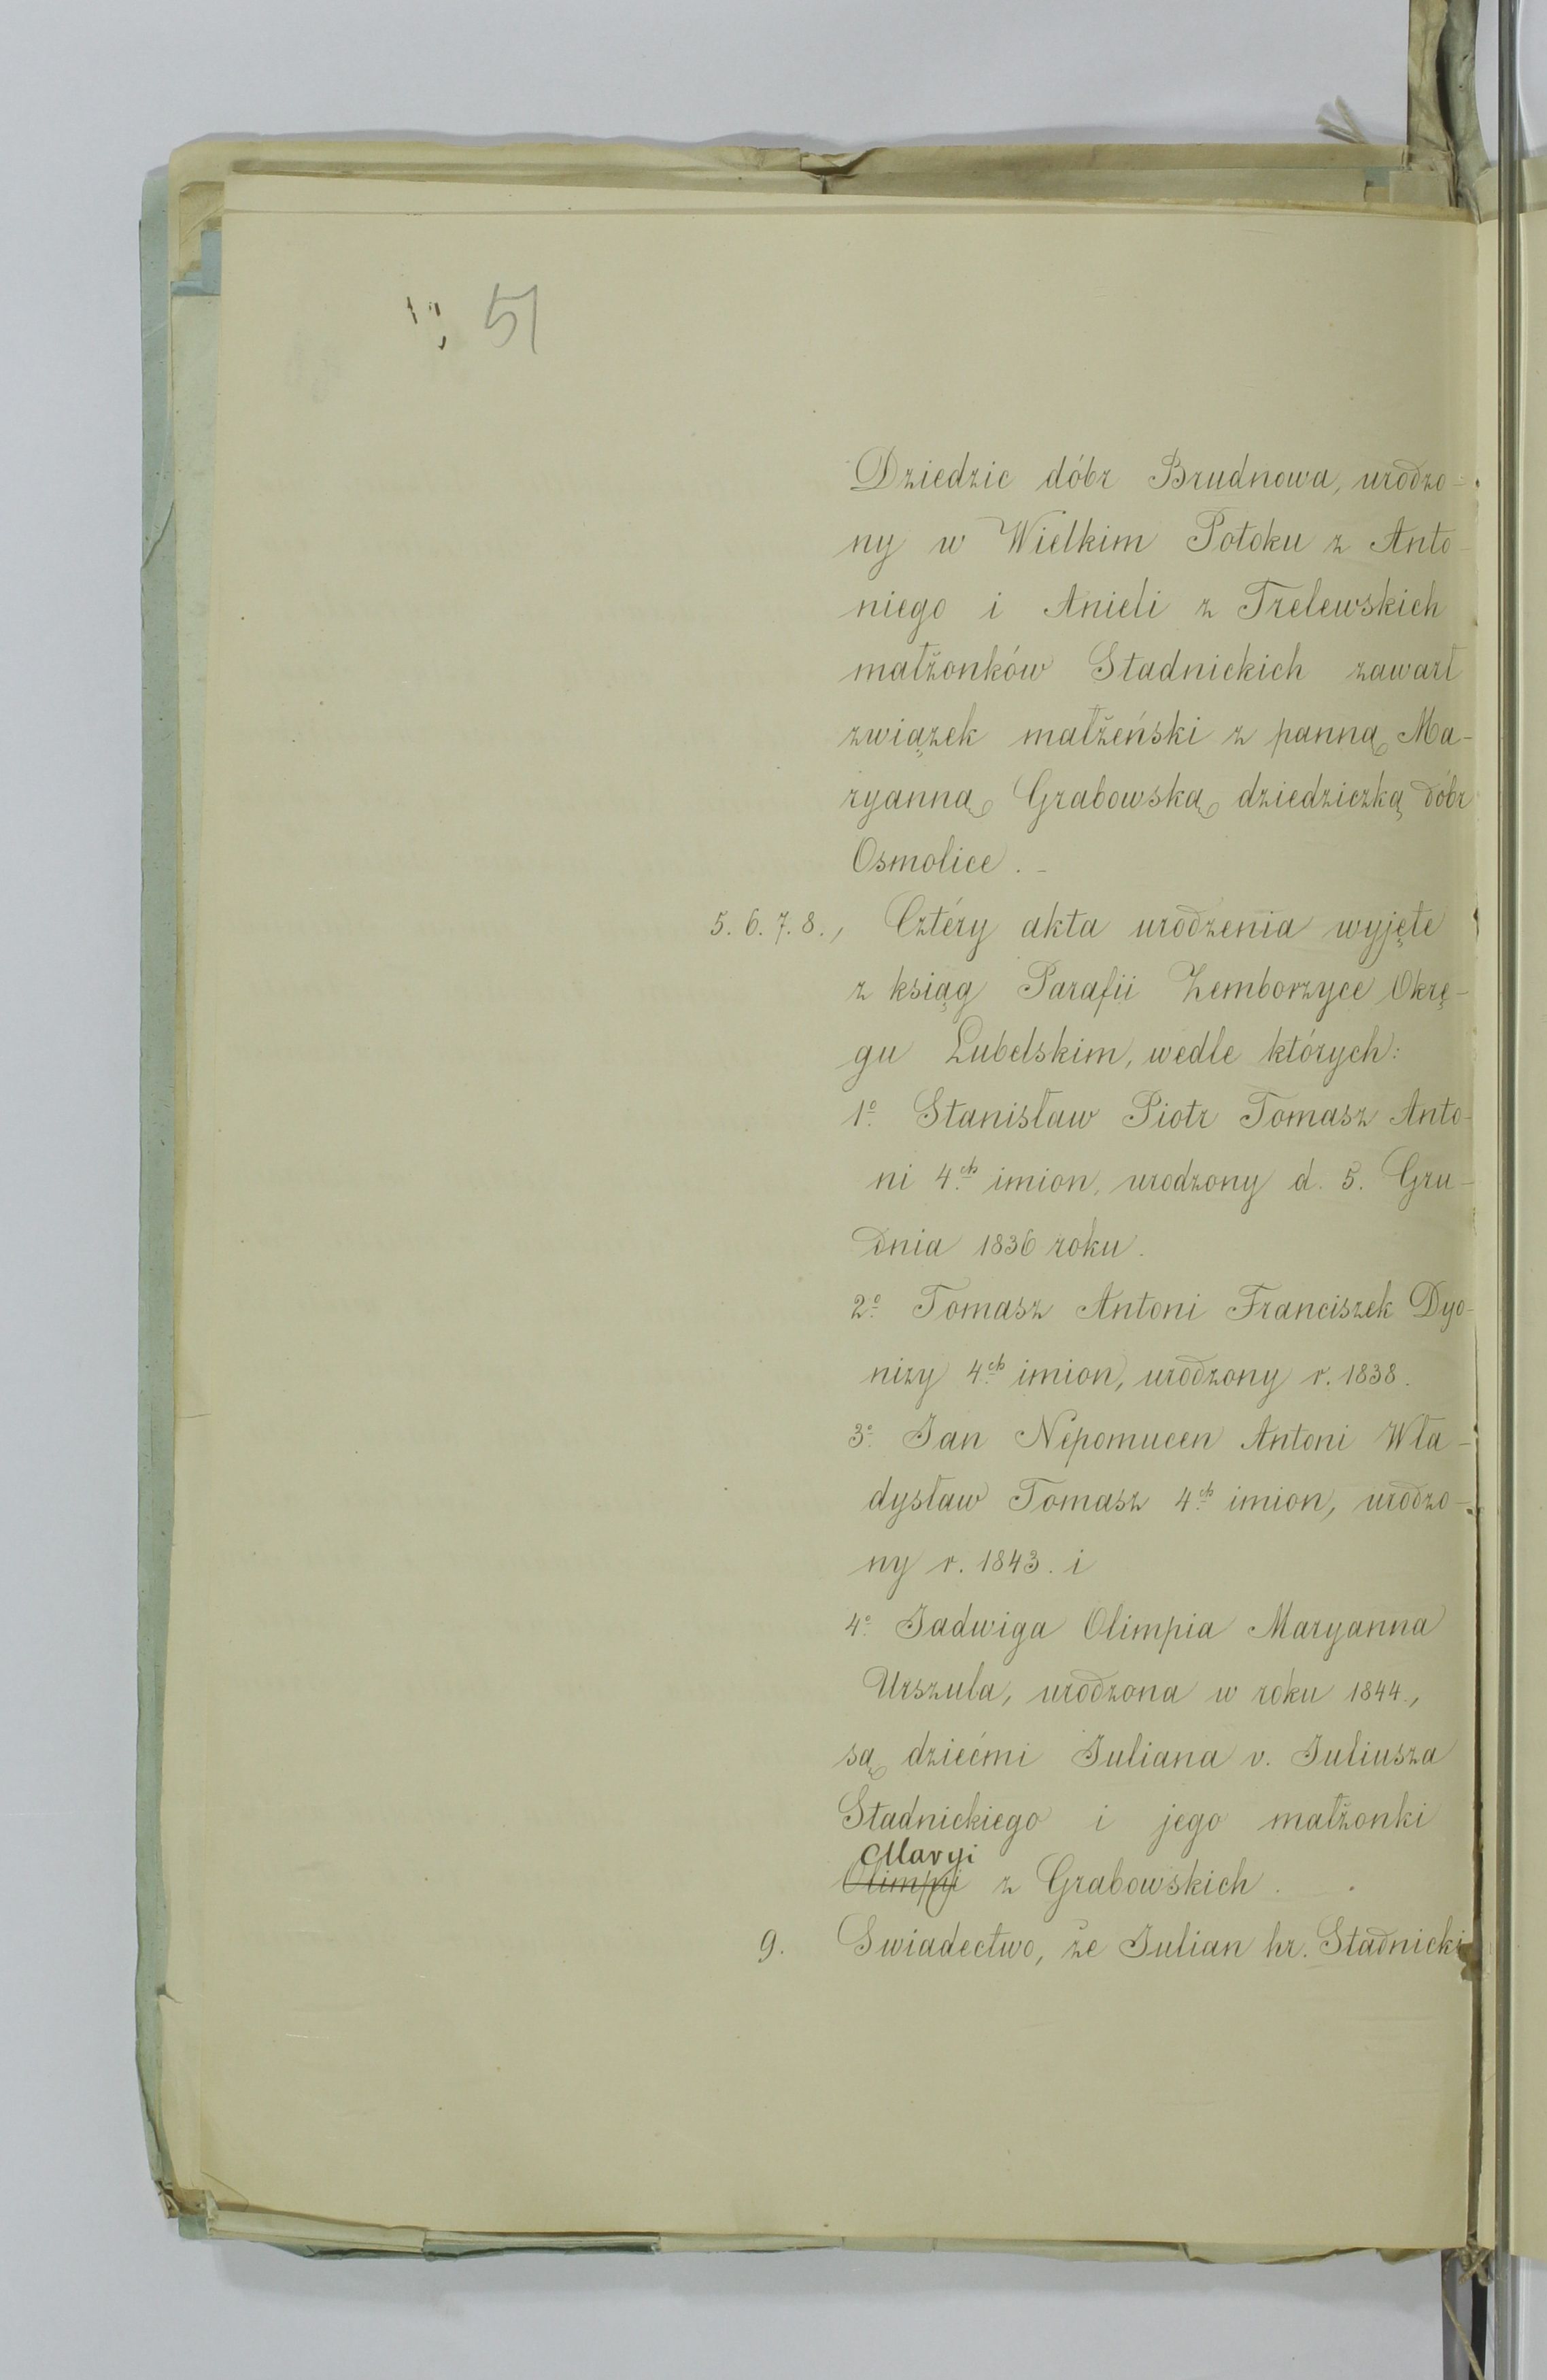 51
Dziedzic dóbr Brudnowa, urodzo-
ny w Wielkim Potoku z Anto-
niego i Anieli z Trelewskich
małżonków Stadnickich zawarł
związek małżeński z panną Ma-
ryanną Grabowską dziedziczką dóbr
Osmolice. -
5. 6. 7. 8., Cztéry akta urodzenia wyjęte
z ksiąg Parafii Zemborzyce Okrę-
gu Lubelskim, wedle których:
1o. Stanisław Piotr Tomasz Anto-
ni 4.ch imion, urodzony d. 5. Gru-
dnia 1836 roku.
2o. Tomasz Antoni Franciszek Dyo-
nizy 4.ch imion, urodzony r. 1838.
3o. Jan Nepomucen Antoni Wła-
dysław Tomasz 4.ch imion, urodzo-
ny r. 1843. i
4o. Jadwiga Olimpia Maryanna
Urszula, urodzona w roku 1844.,
są dziećmi Juliana v. Juliusza
Stadnickiego i jego małżonki
Maryi
Olimpii z Grabowskich.
9. Swiadectwo, że Julian hr. Stadnicki